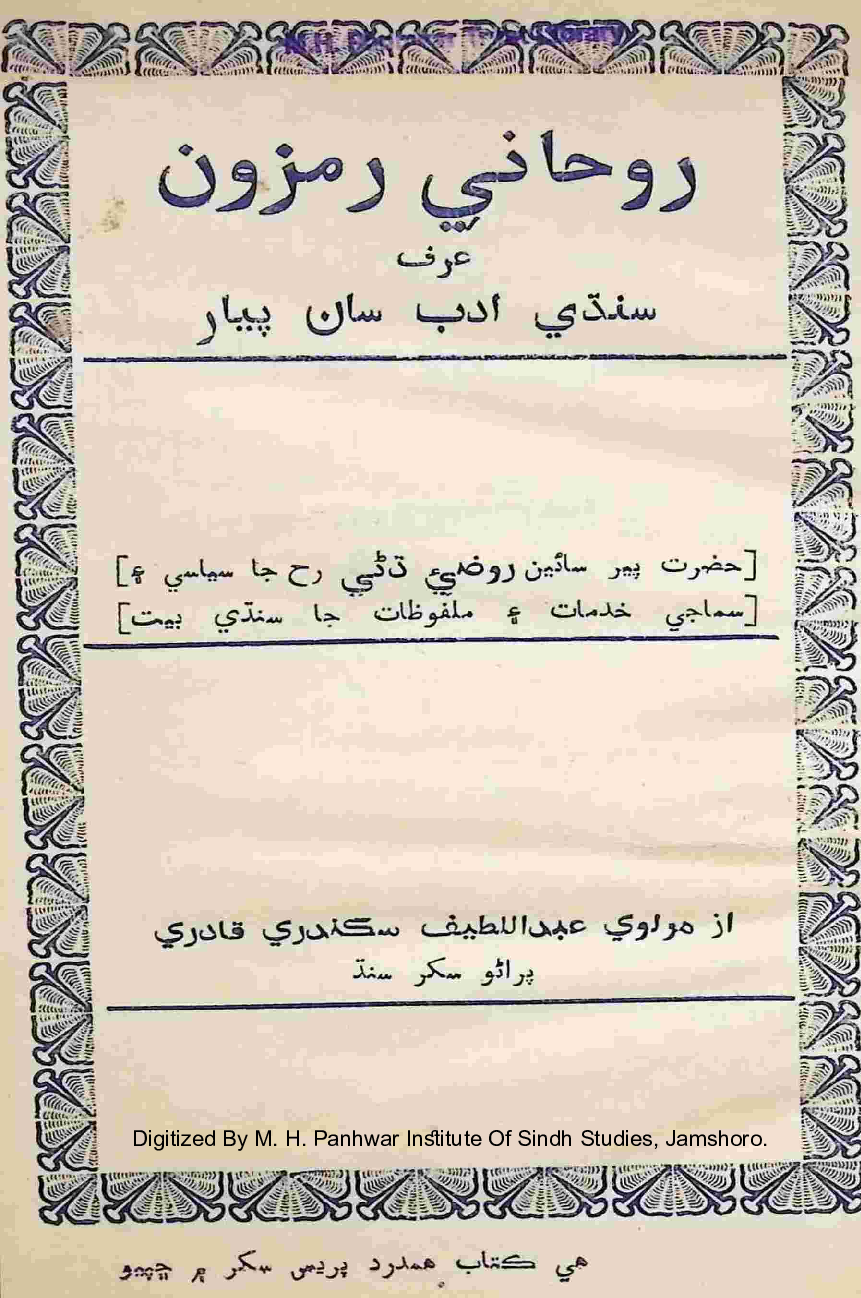 M. H. Panhwar
روحاني رمزون
عرف
سنڌي ادب سان پيار
[حضرت پير سائين روضي ڌڻي رح جا سياسي ۽]
[سماجي خدمات ۽ ملفوظات جا سنڌي بيت]
از مولوي عبداللطيف سڪندري قادري
پراڻو سکر سنڌ
Digitized By M. H. Panhwar Institute Of Sindh Studies, Jamshoro.
هي ڪتاب همدرد پريس سکر ۾ ڇپيو